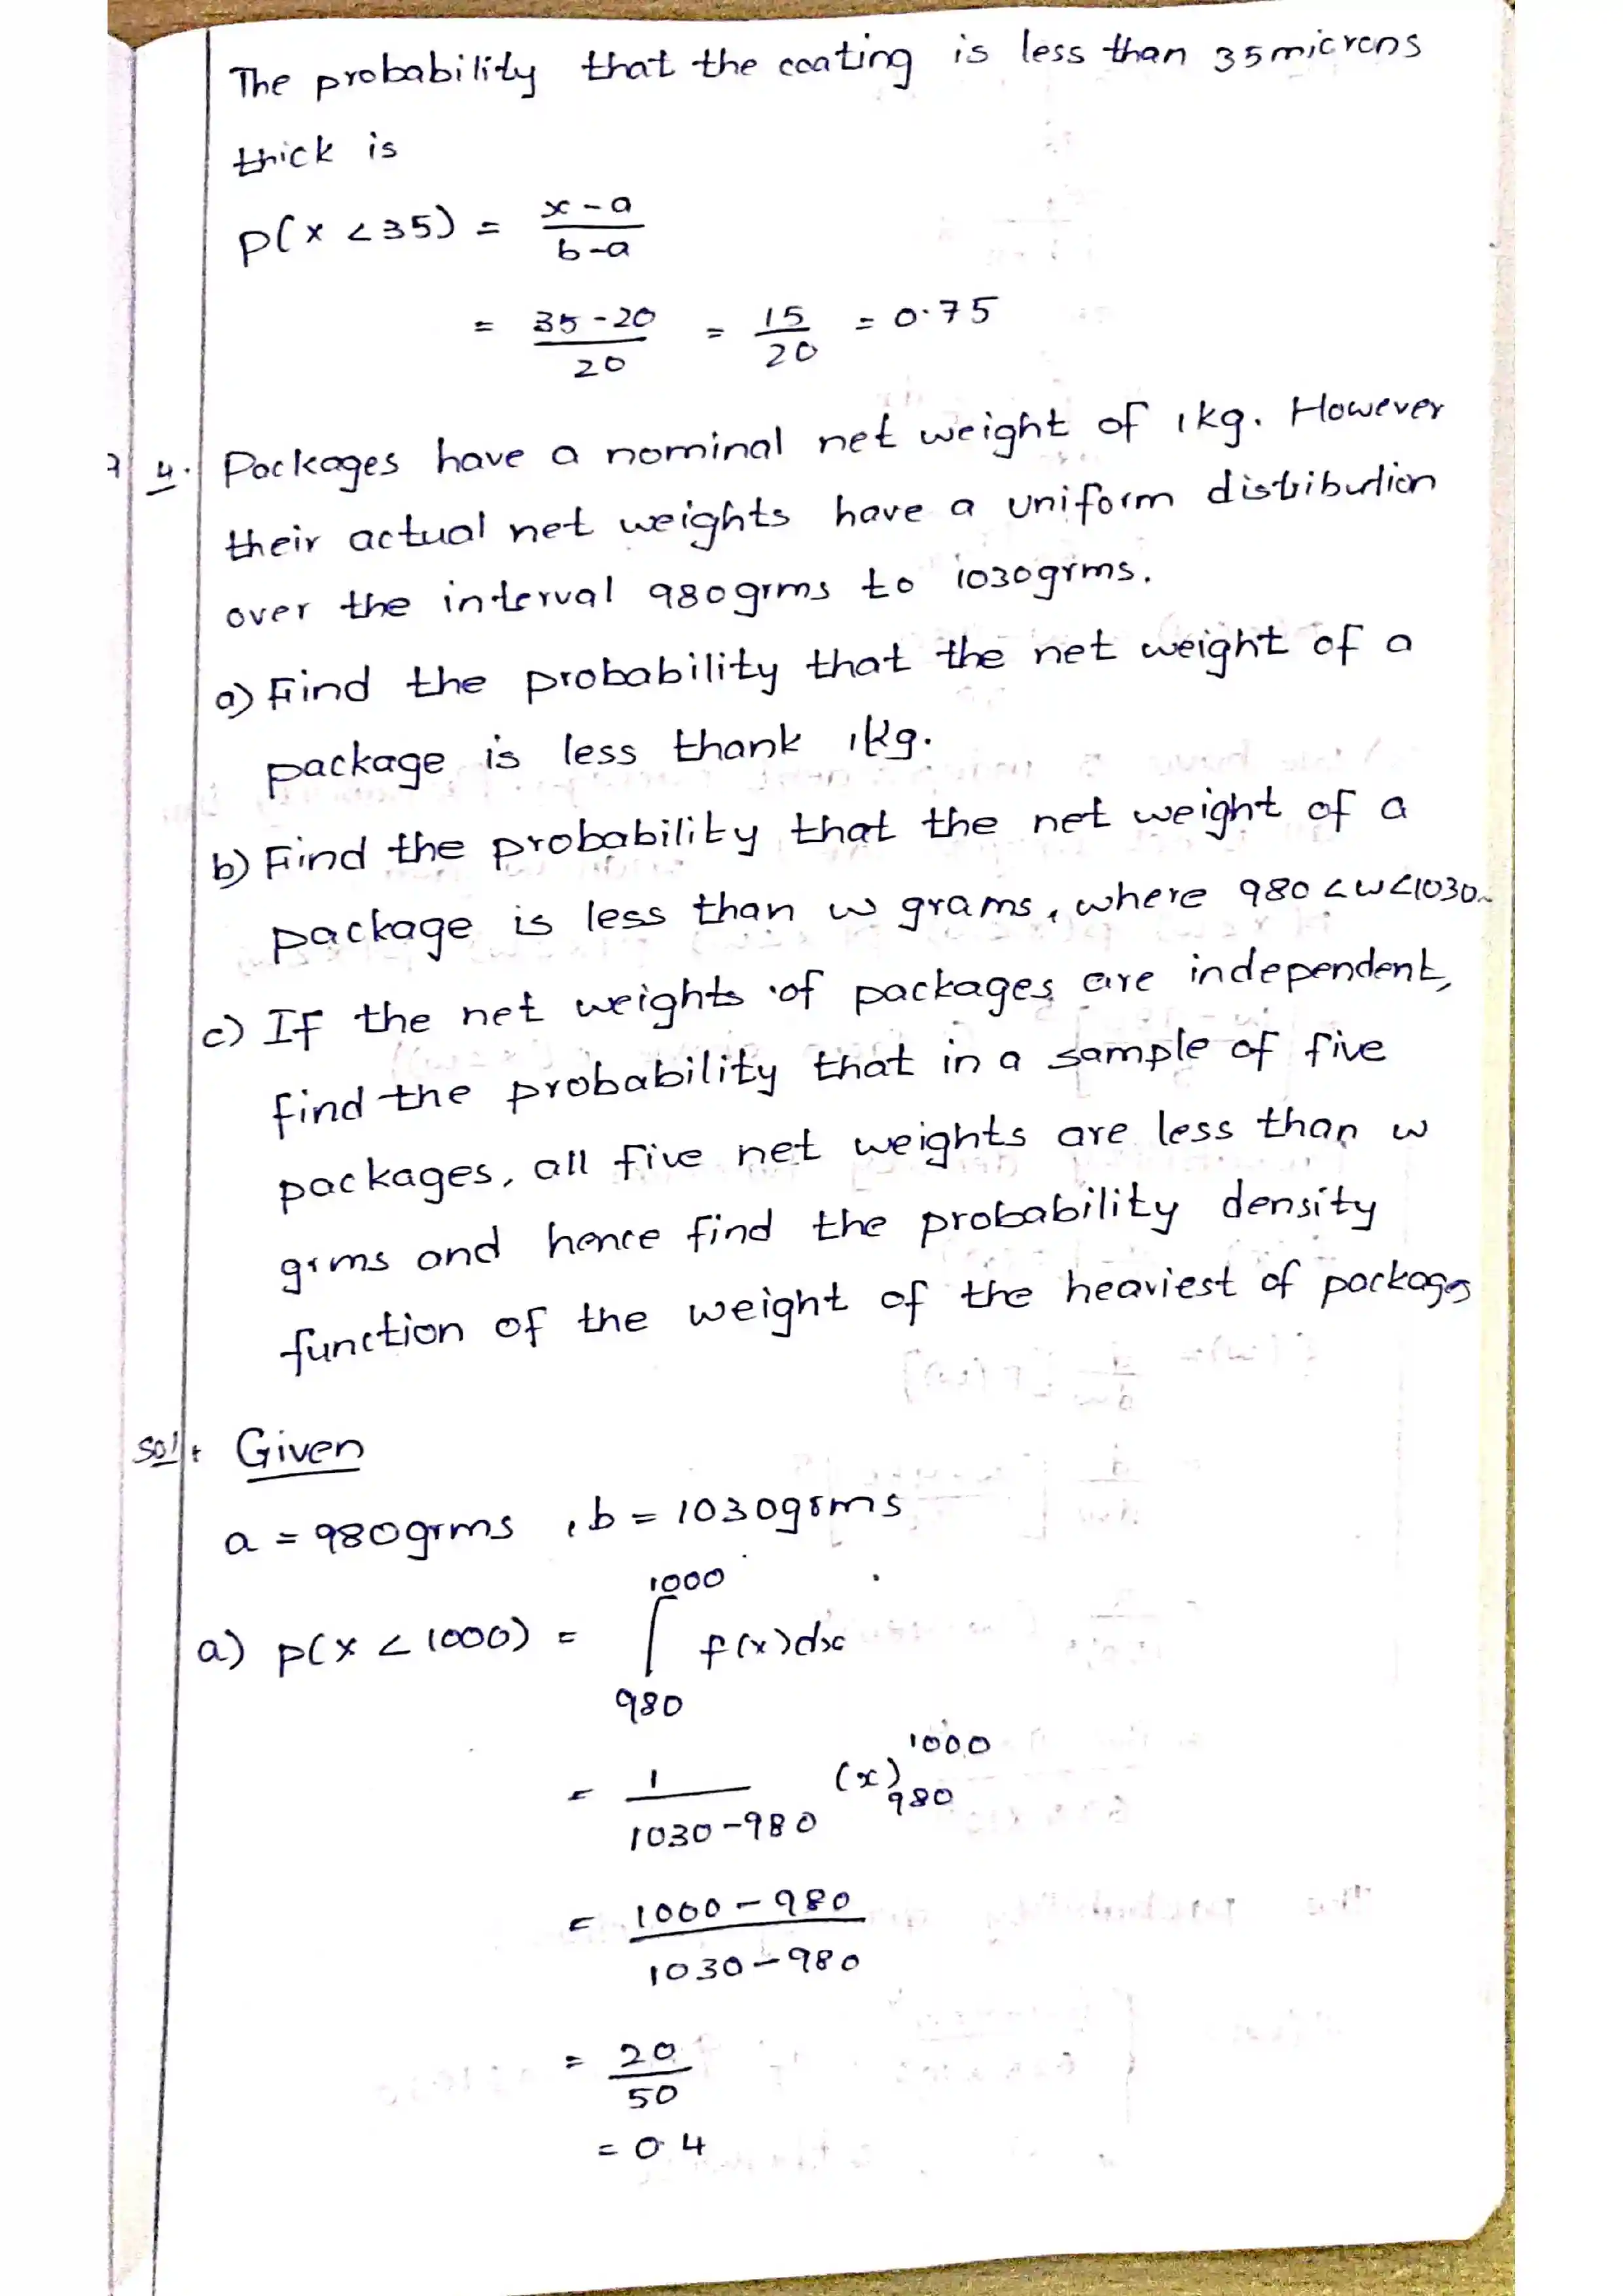 The probability that the coating is less than 35 microns
thick is
P(x < 35) = x-a / b-a
= 35-20 / 20 = 15 / 20 = 0.75
4. Packages have a nominal net weight of 1kg. However
their actual net weights have a uniform distribution
over the interval 980grms to 1030grms.
a) Find the probability that the net weight of a
package is less thank 1kg.
b) Find the probability that the net weight of a
package is less than w grams, where 980 < w < 1030.
c) If the net weights of packages are independent,
find the probability that in a sample of five
packages, all five net weights are less than w
grms and hence find the probability density
function of the weight of the heaviest of packages
Sol: Given
a = 980grms , b = 1030grms
a) P(x < 1000) = ∫ 980 1000 f(x)dx
= 1 / 1030-980 (x) 980 1000
= 1000-980 / 1030-980
= 20 / 50
= 0.4